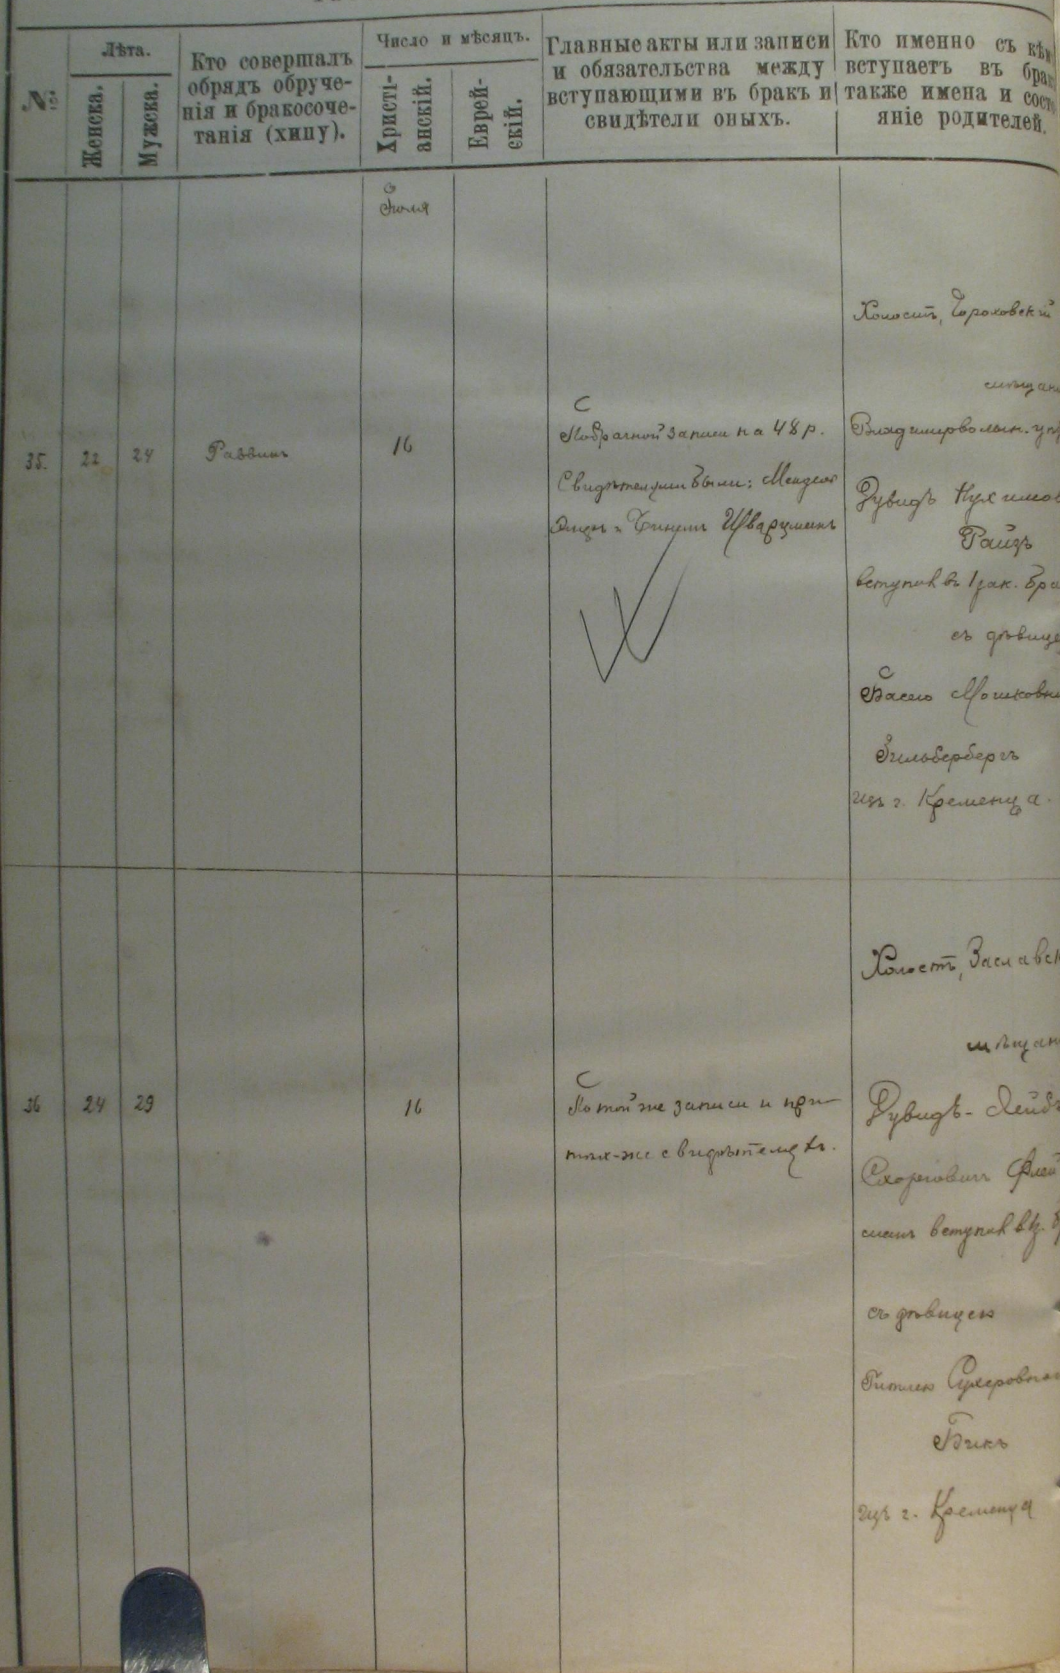 №
Лѣта.
Женска.
Мужска.
Кто совершалъ
обрядъ обруче-
нія и бракосоче-
танія (хипу).
Число и мѣсяцъ.
Христі-
анскій.
Еврей-
скій.
Главные акты или записи
и обязательства между
вступающими въ бракъ и
свидѣтели оныхъ.
Кто именно съ кѣм
вступаетъ въ брак
также имена и состо
яніе родителей.
Іюля
35.
22
24
Раввинъ
16
По брачной записи на 48 р.
Свидѣтелями были: Мендель
Шварцманъ
Холостъ, Гороховскій
мѣщан
Владимирволын. у
Дувидъ
Райзъ
вступил въ 1 зак. бра
съ дѣвице
Басею Мошковн
Зильбербергъ
изъ г. Кременца.
36
24
29
16
По той же записи и при
тѣх-же свидѣтеляхъ.
Холостъ, Заславск
мѣщан
Дувидъ-Лейб
Флей
манъ вступил въ
съ дѣвицею
Гитлею
Бикъ
изъ г. Кременца